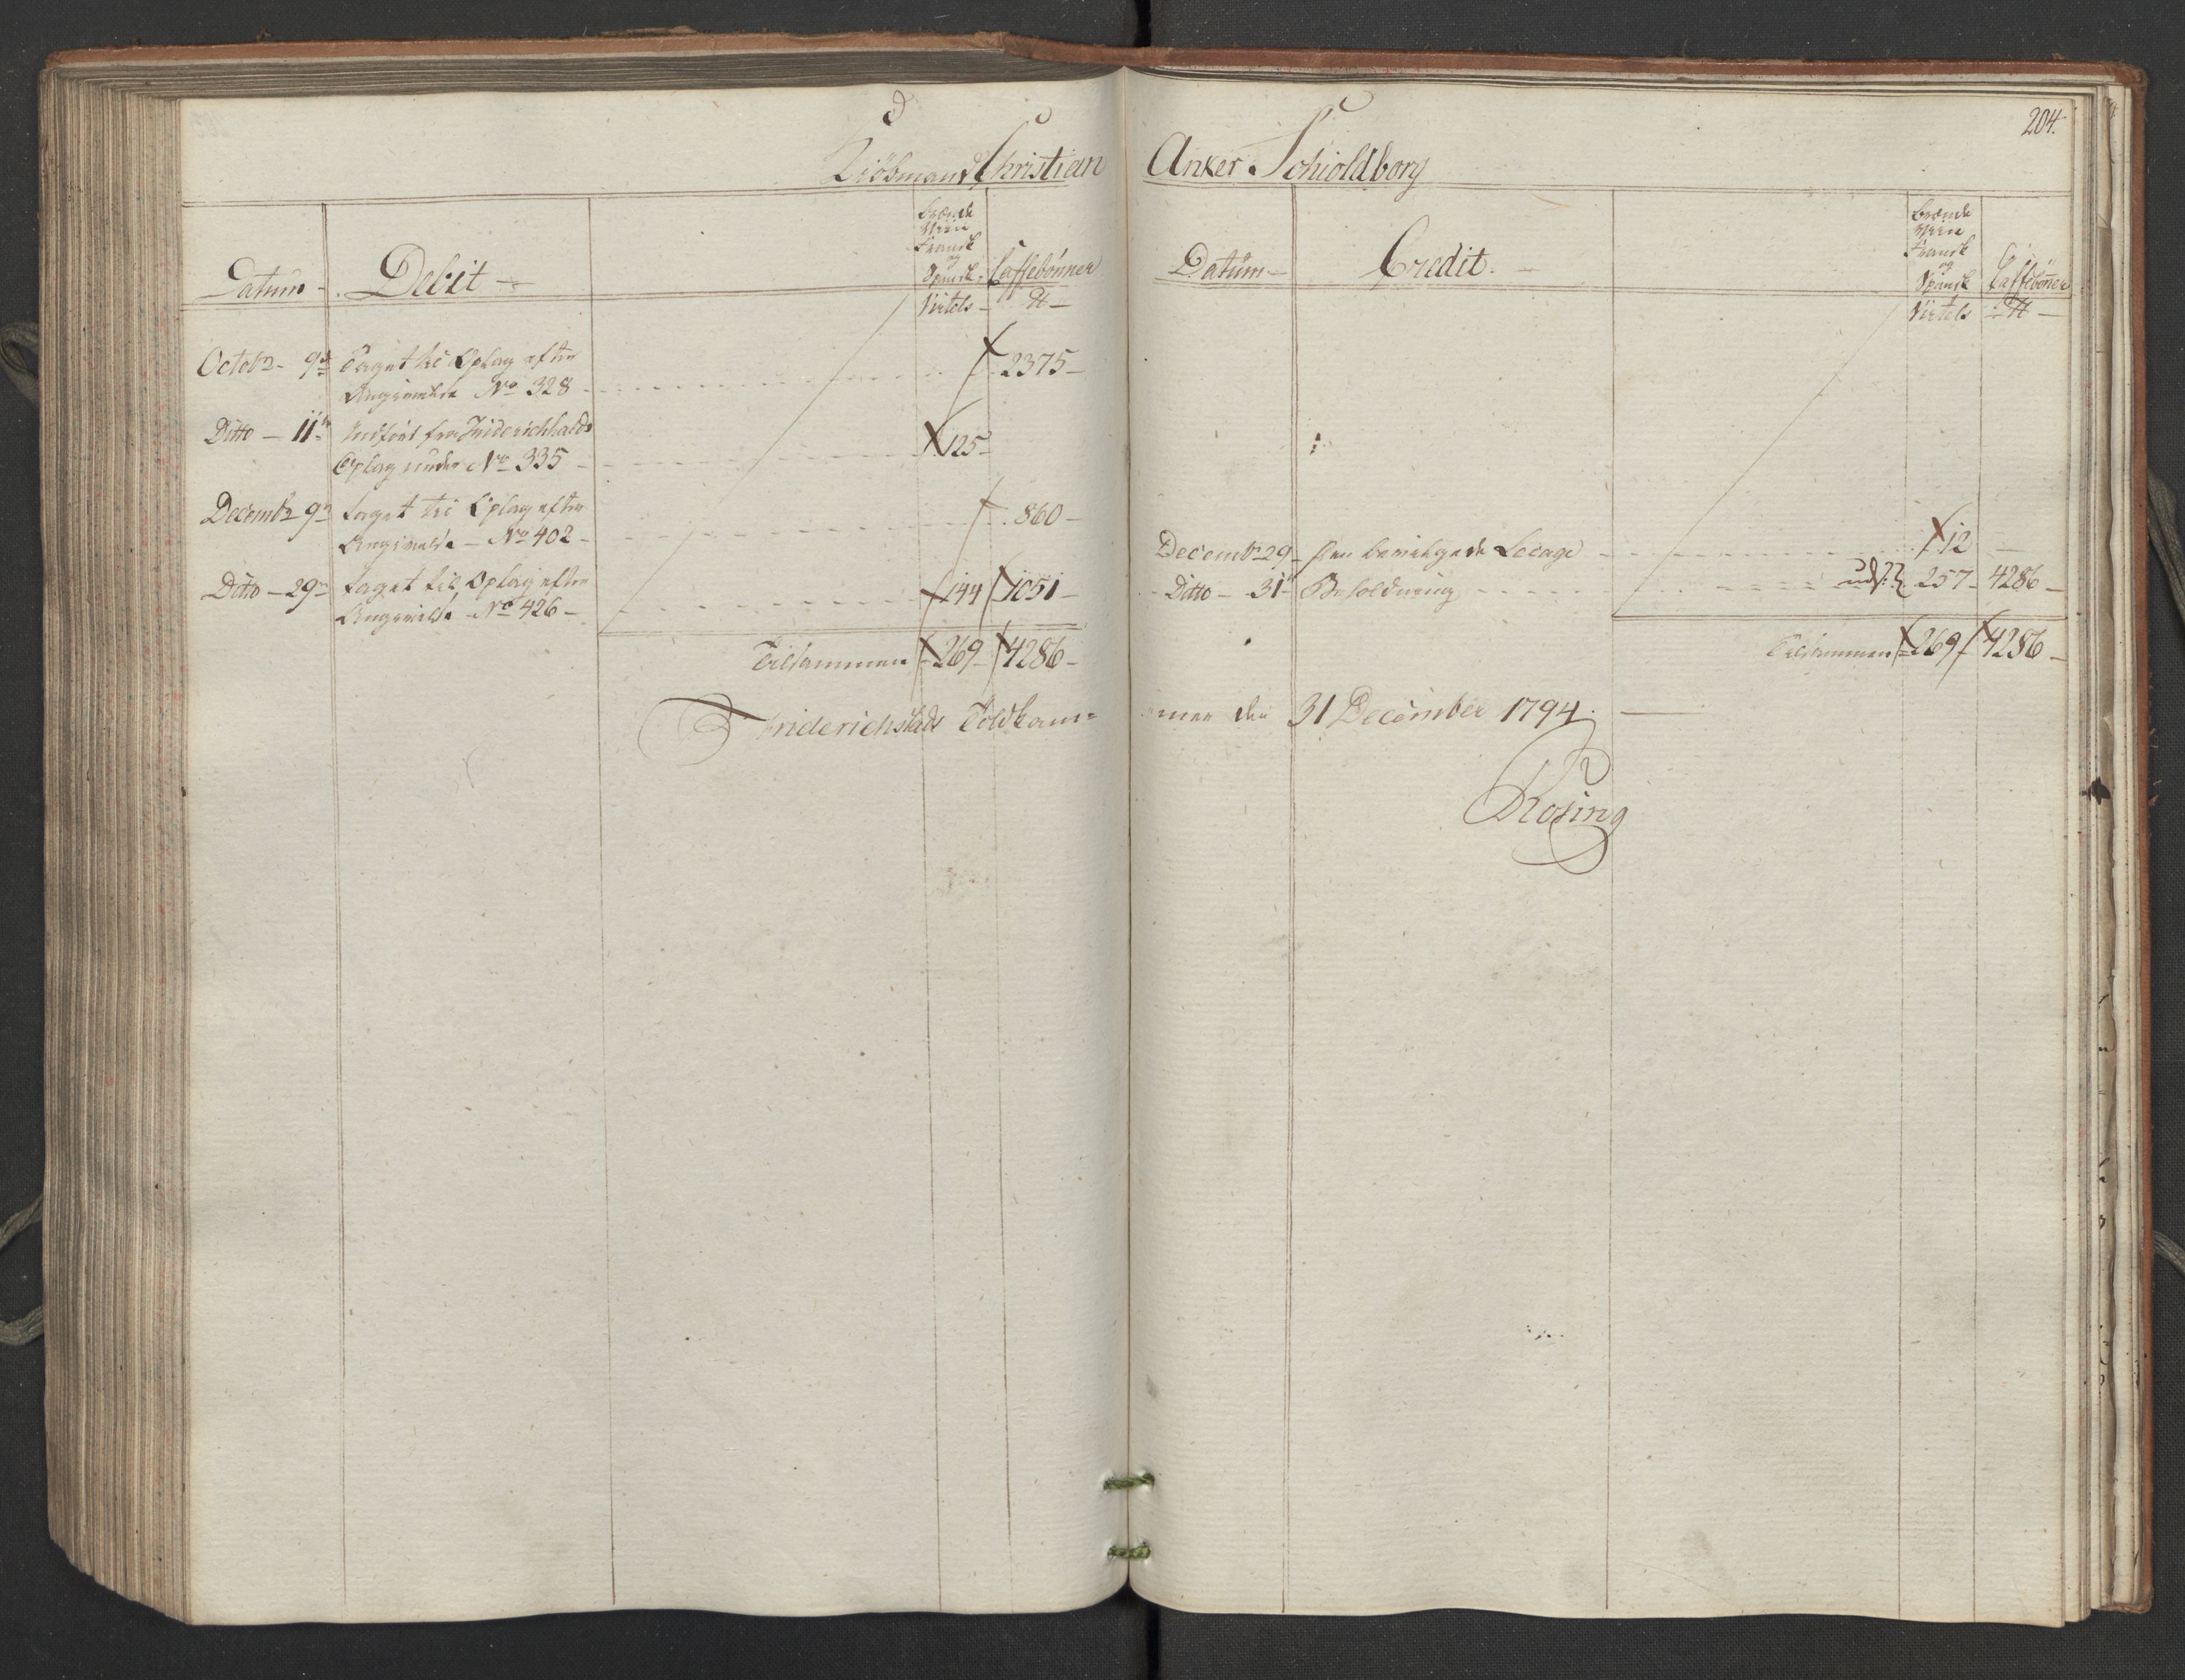 204.
Kiöbmand Christian Anker Schioldborg
Datum
Debit
Brænde
Viin
Fransk
og
Spansk
Virtels
Caffebønner
℔
Octobr 9de Taget til Oplag efter
Angivelse No 328 2375
Ditto 11te Indført fra Friderichhalds
Oplag under No 335 125
Decembr 9de taget til Oplag efter
Angivelse No 402 860
Ditto 29de taget til Oplag efter 144 1051
Angivelse No 426
Tilsammen 269 4286
Datum
Credit
Brænde
Viin
Fransk
og
Spansk
Virtels
Caffebønner
℔
Decembr 29 den bevilgede Lecage 12
Ditto 31te Beholdning uds: 257 4286
Tilsammen 269 4286
Friderichstads Toldkam=
mer den 31 December 1794
Rosing